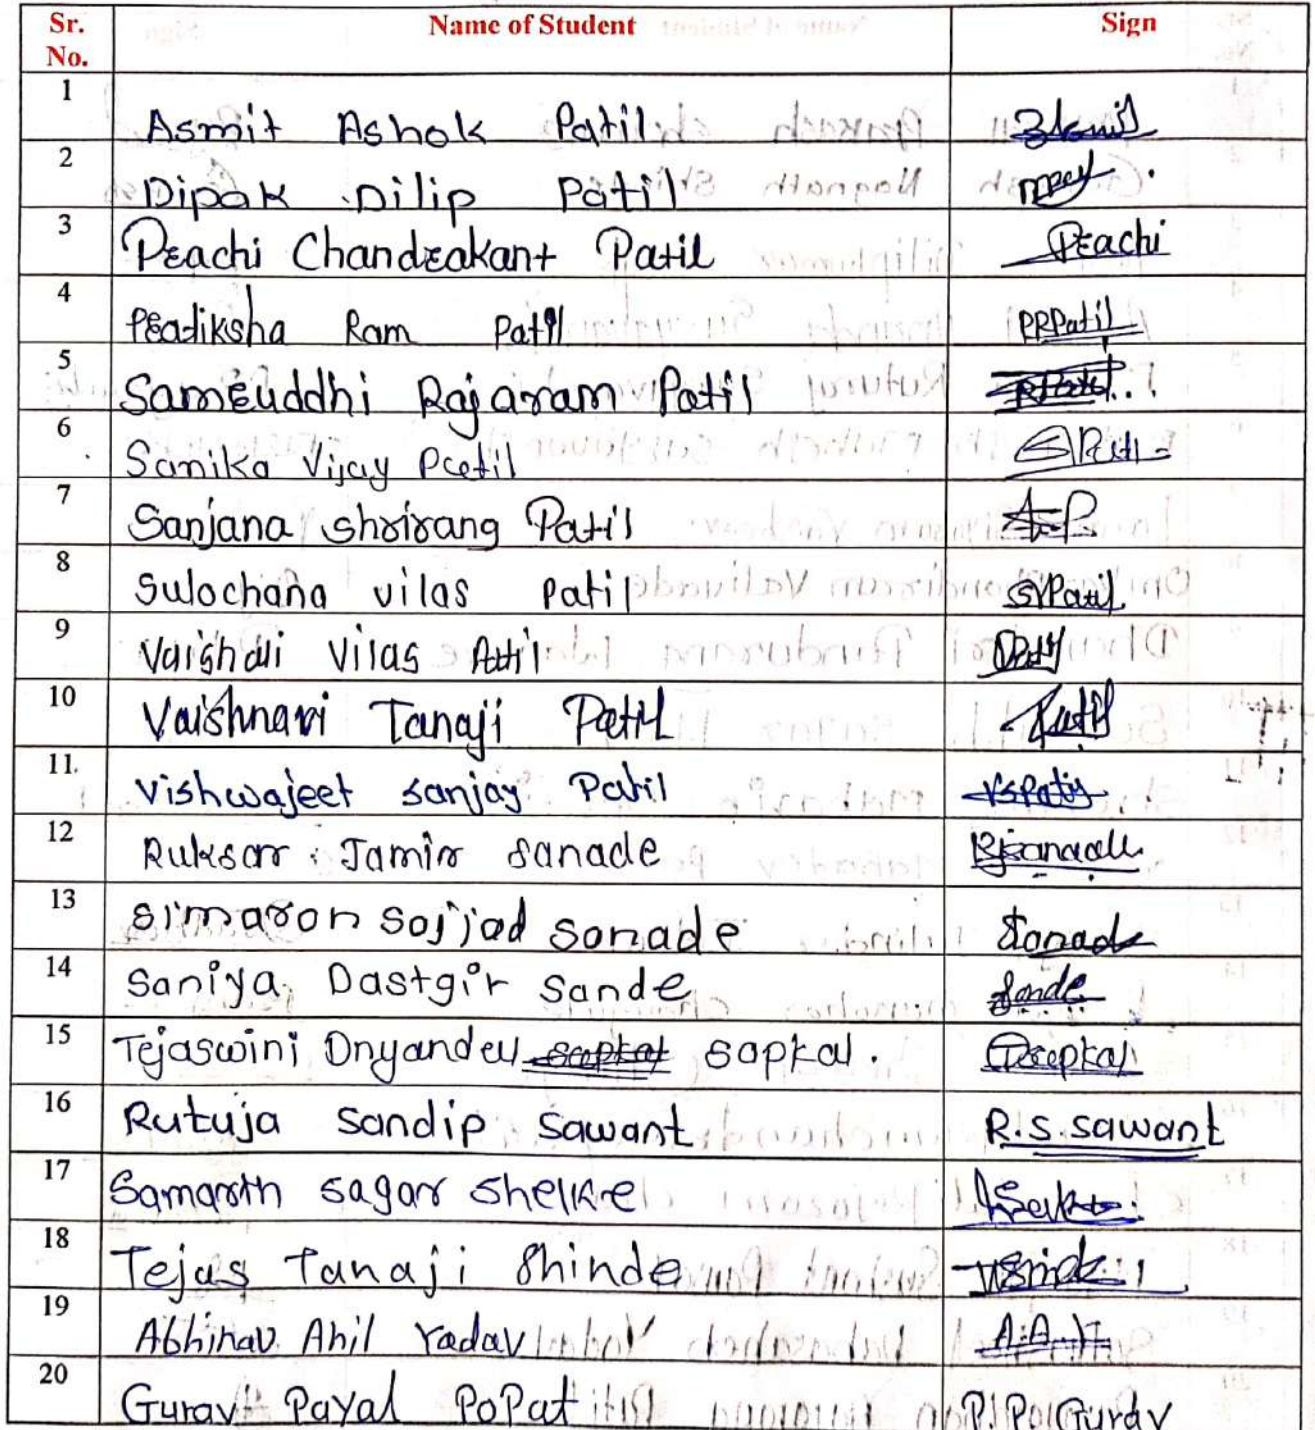 Sr. No. Name of Student Sign
1 Asmit Ashok Patil
2 Dipak Dilip Patil
3 Prachi Chandrakant Patil Prachi
4 Pratiksha Ram Patil PRPatil
5 Samruddhi Rajaram Patil RPatil
6 Sanika Vijay Patil SPatil
7 Sanjana Shrirang Patil
8 Sulochana vilas Patil SVPatil
9 Vaishali Vilas Patil
10 Vaishnavi Tanaji Patil Patil
11 Vishwajeet sanjay Patil VSPatil
12 Ruksar Jamir sanade RJsanade
13 Simaron Sajjad Sanade Sanade
14 Saniya Dastgir Sande Sande
15 Tejaswini Dnyandev sapkal sapkal. Tsapkal
16 Rutuja Sandip Sawant R.S.Sawant
17 Samarth Sagar Shelke
18 Tejas Tanaji Shinde
19 Abhinav Anil Yadav A.A.Y
20 Gurav Payal PoPat P.P.Gurav